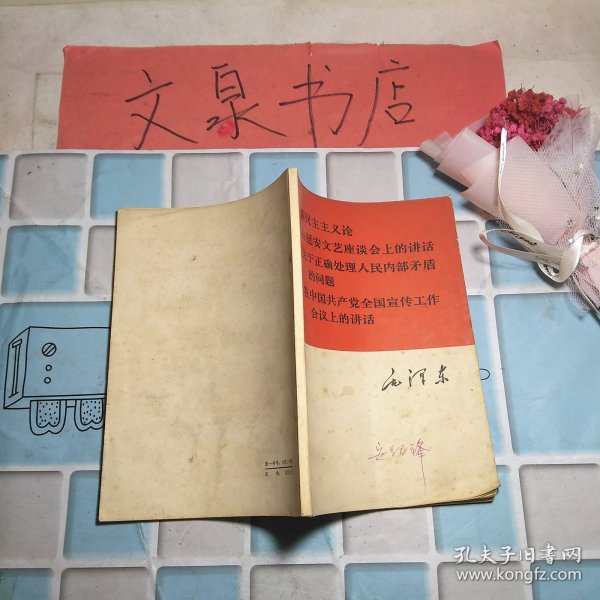 文泉书店
新民主主义论
在延安文艺座谈会上的讲话
关于正确处理人民内部矛盾
的问题
在中国共产党全国宣传工作
会议上的讲话
毛泽东
孔夫子旧书网
www.kongfz.com